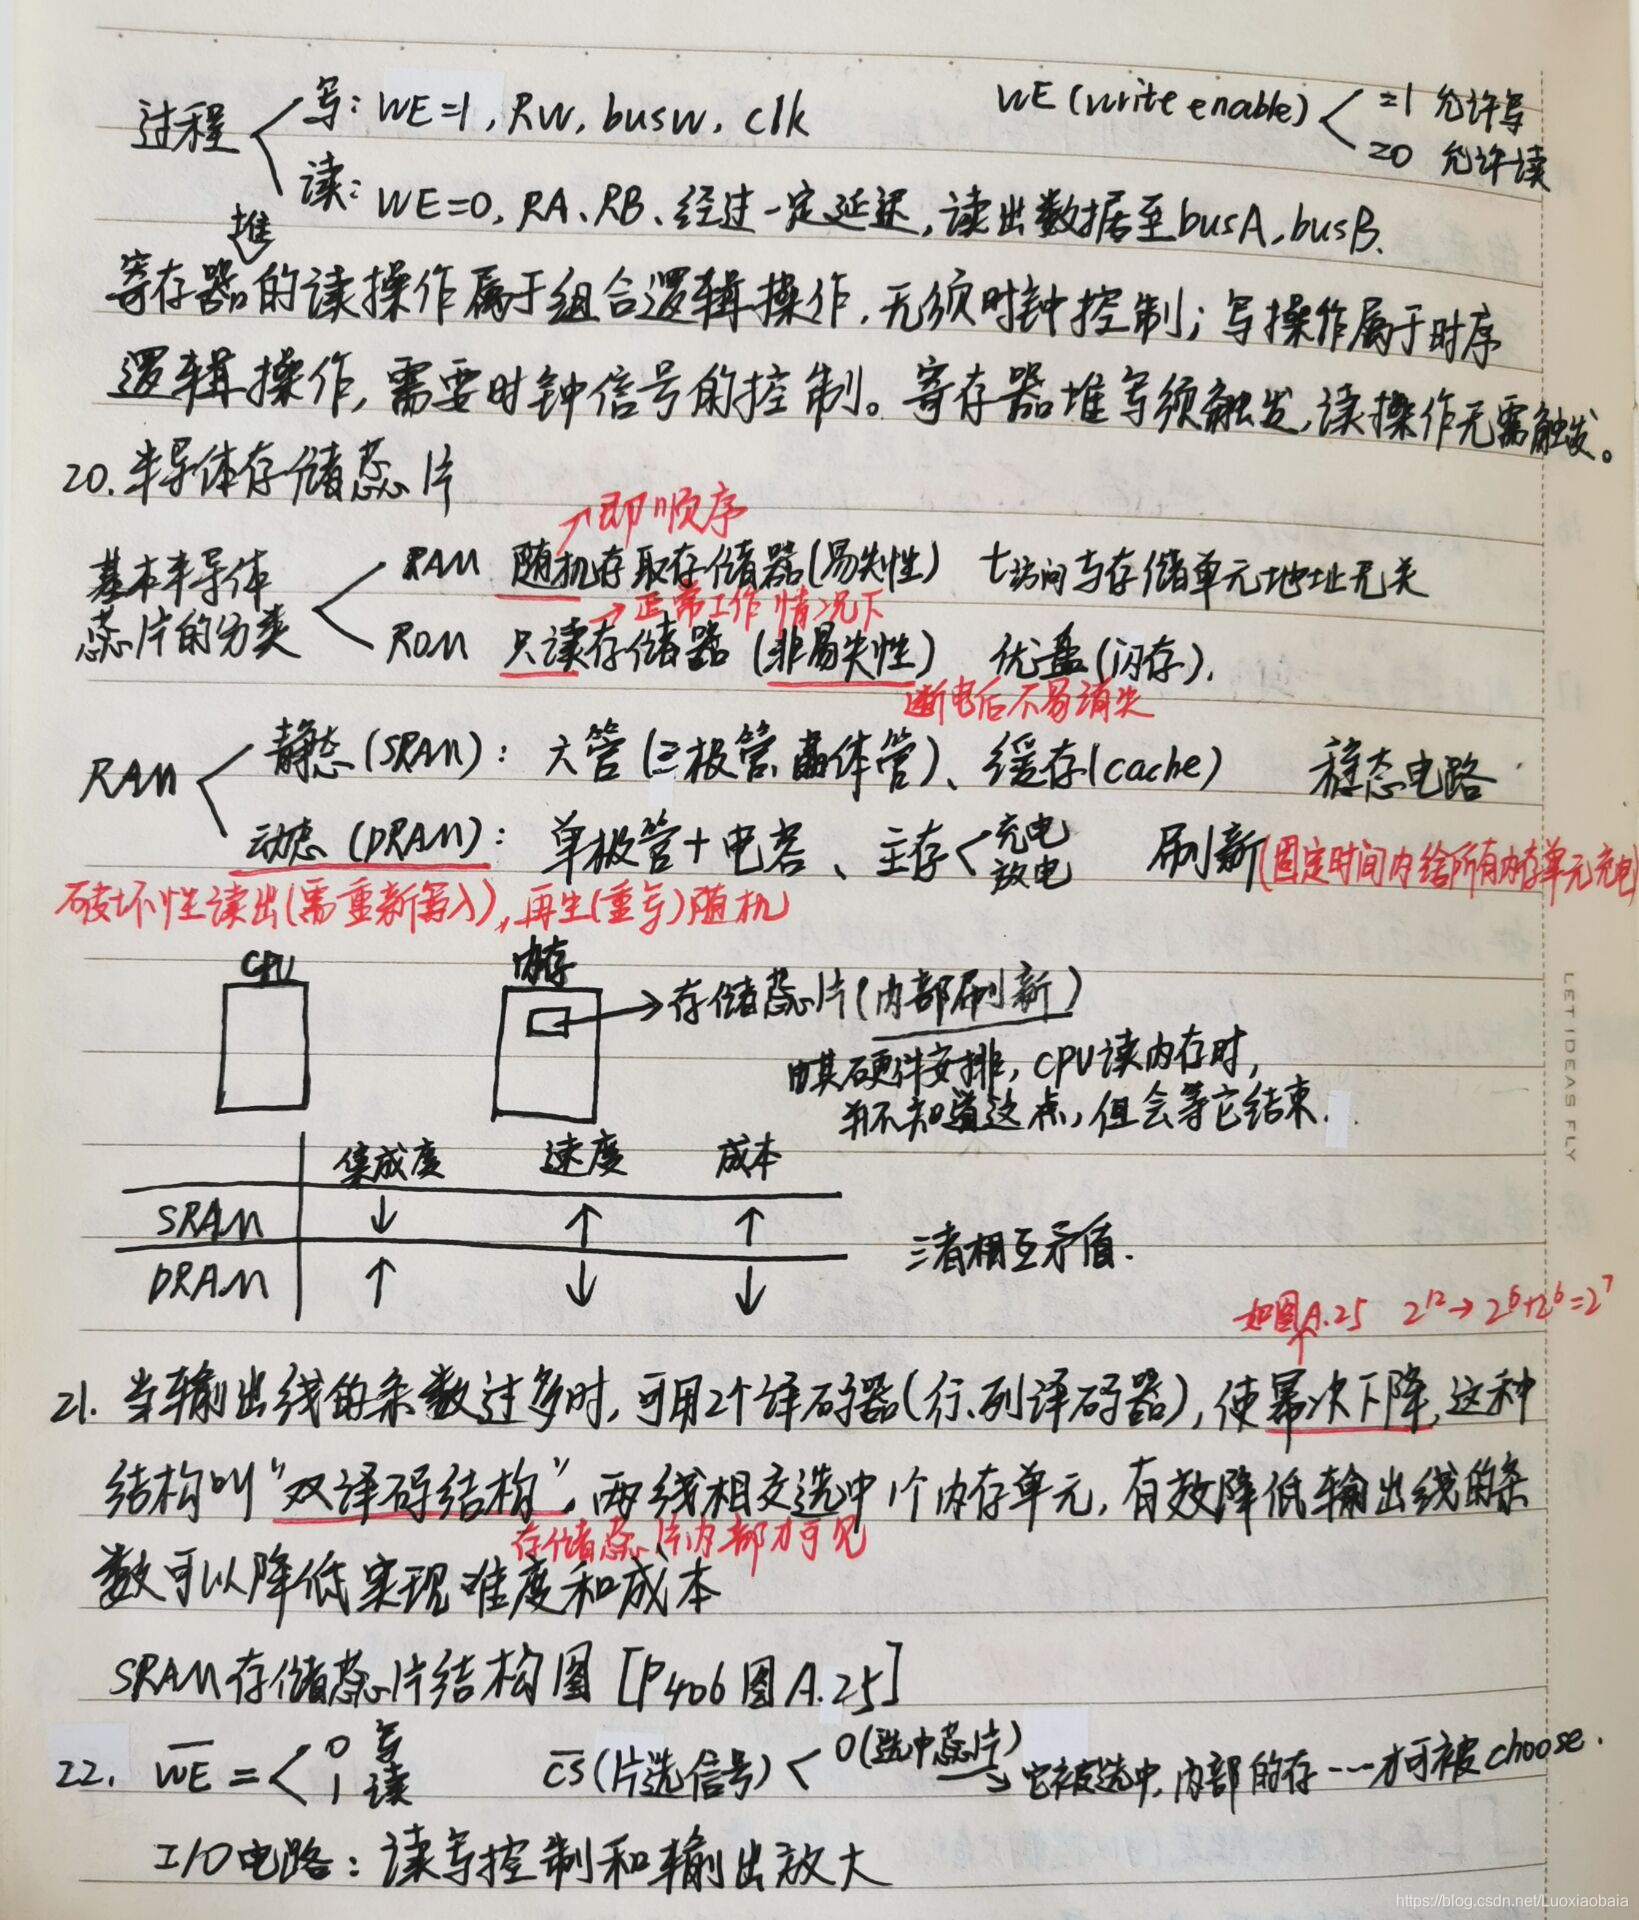 过程 写: WE=1, RW, busW, clk
WE (write enable) =1 允许写
=0 允许读
读: WE=0, RA、RB、经过一定延迟,读出数据至busA, busB.
堆
寄存器的读操作属于组合逻辑操作,无须时钟控制;写操作属于时序
逻辑操作,需要时钟信号的控制。寄存器堆写须触发,读操作无需触发。
20. 半导体存储芯片
→即顺序
基本半导体
芯片的分类
RAM 随机存取存储器(易失性) t访问与存储单元地址无关
→正常工作情况下
ROM 只读存储器 (非易失性) 优盘(闪存).
断电后不易消失
RAM 静态(SRAM): 六管(三极管、晶体管)、缓存(cache) 稳态电路
动态(DRAM): 单极管+电容、主存 充电
放电
刷新(固定时间内给所有内存单元充电)
破坏性读出(需重新写入),再生(重写)随机
CPU 内存
→存储芯片(内部刷新)
由其硬件安排,CPU读内存时,
并不知道这点,但会等它结束.
集成度 速度 成本
SRAM ↓ ↑ ↑
三者相互矛盾.
DRAM ↑ ↓ ↓
如图A.25 2^12→2^6+2^6=2^7
21. 当输出线的条数过多时,可用2个译码器(行、列译码器),使幂次下降,这种
结构叫"双译码结构",两线相交选中1个内存单元,有效降低输出线的条
存储芯片内部才可见
数可以降低实现难度和成本
SRAM存储芯片结构图 [P406图A.25]
22. W̅E̅ = 0 写
1 读
C̅S̅(片选信号) 0(选中芯片)
→它被选中,内部的存……才可被choose.
I/O电路:读写控制和输出放大
LET IDEAS FLY
https://blog.csdn.net/Luoxiaobaia